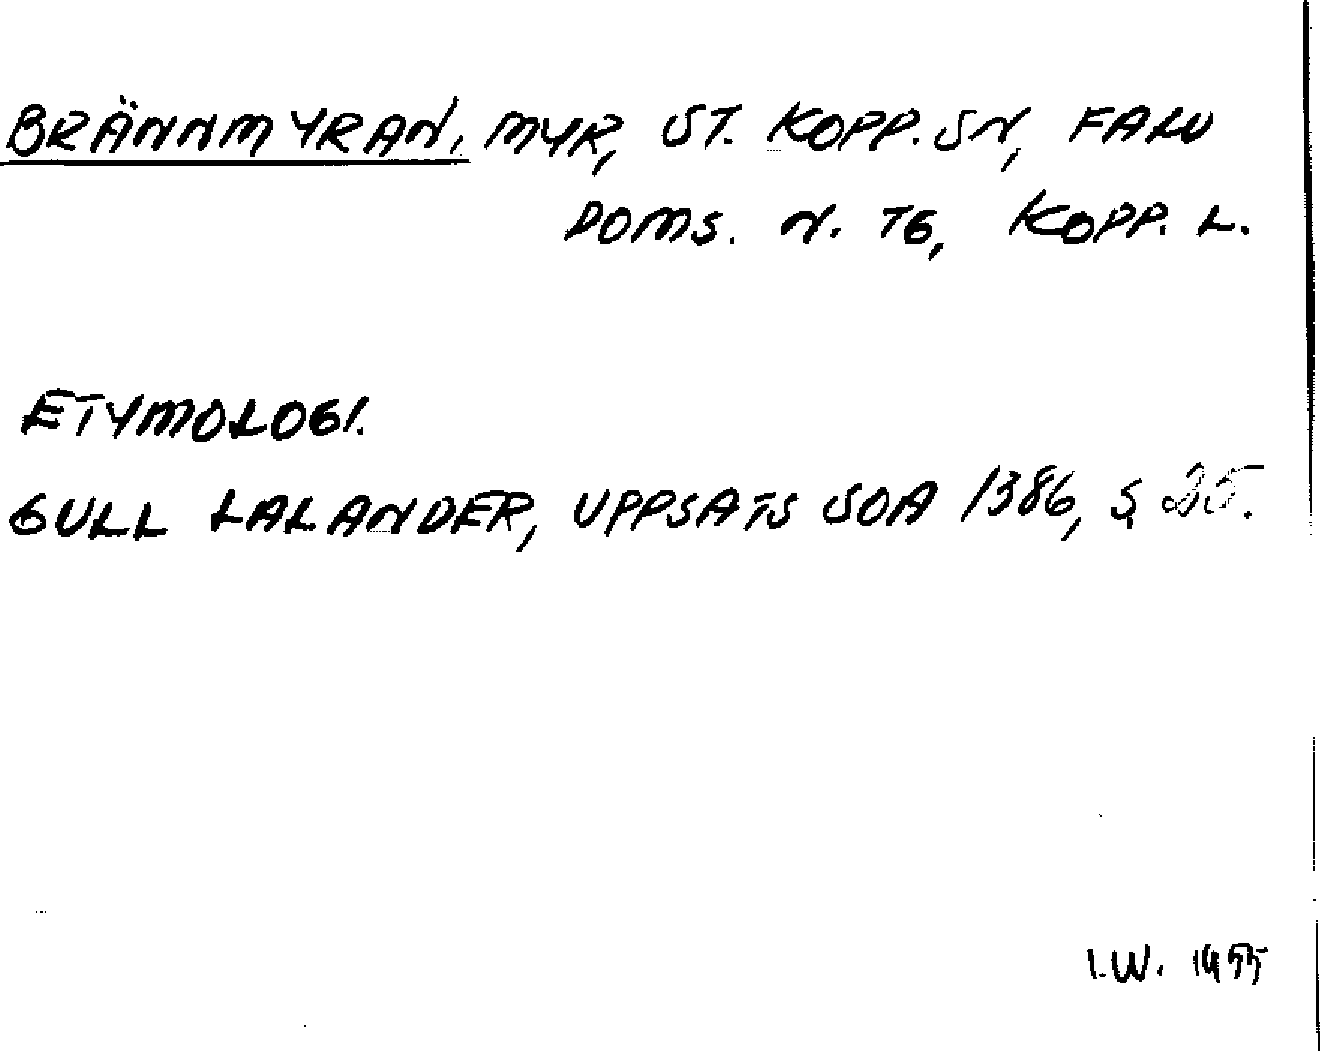 BRÄNNMYRAN, MYR, ST. KOPP. SN, FALU
DOMS. N. TG, KOPP. L.
ETYMOLOGI.
GULL LALANDER, UPPSATS SOA 1386, S 25.
I.W. 1955